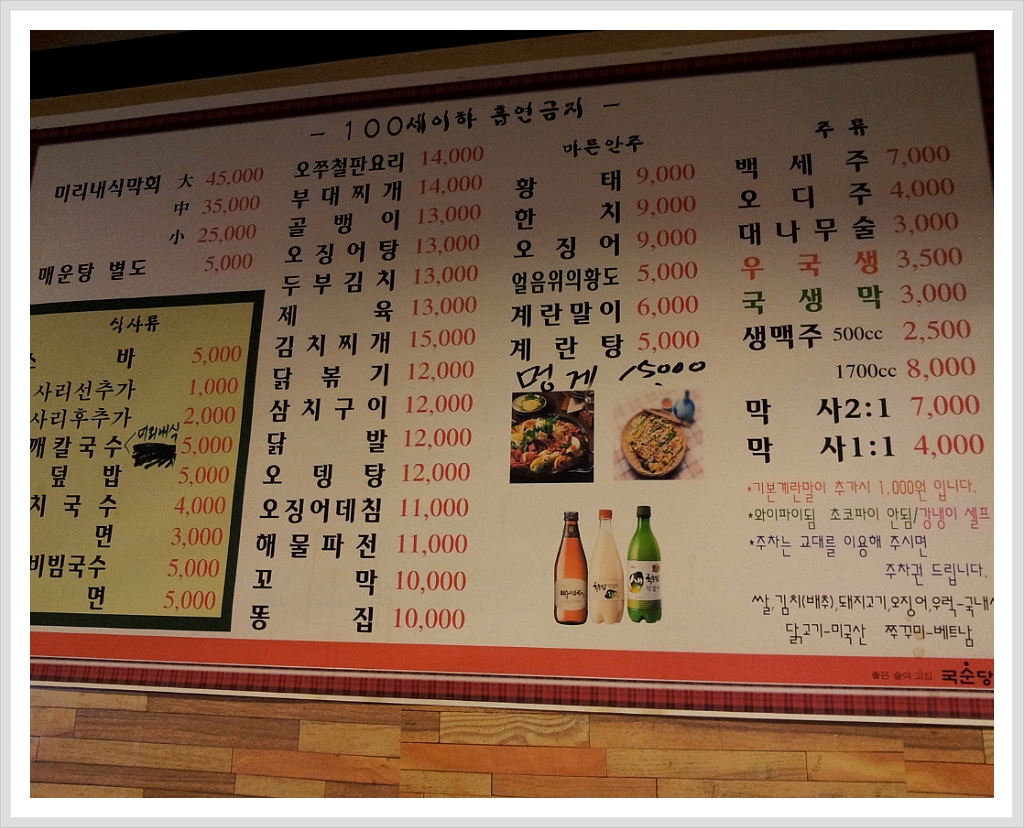 - 100세이하 흡연금지 -
미리내식막회 大 45,000
中 35,000
小 25,000
매운탕 별도 5,000
식사류
바 5,000
사리선추가 1,000
사리후추가 2,000
깨칼국수 미리예식 5,000
덮밥 5,000
치국수 4,000
면 3,000
비빔국수 5,000
면 5,000
오쭈철판요리 14,000
부대찌개 14,000
골뱅이 13,000
오징어탕 13,000
두부김치 13,000
제육 13,000
김치찌개 15,000
닭볶기 12,000
삼치구이 12,000
닭발 12,000
오뎅탕 12,000
오징어데침 11,000
해물파전 11,000
꼬막 10,000
똥집 10,000
마른안주
황태 9,000
한치 9,000
오징어 9,000
얼음위의황도 5,000
계란말이 6,000
계란탕 5,000
멍게 15,000
주류
백세주 7,000
오디주 4,000
대나무술 3,000
우국생 3,500
국생막 3,000
생맥주 500cc 2,500
1700cc 8,000
막사2:1 7,000
막사1:1 4,000
*기본계란말이 추가시 1,000원 입니다.
*와이파이됨 초코파이 안됨/강냉이 셀프
*주차는 교대를 이용해 주시면
주차권 드립니다.
쌀,김치(배추),돼지고기,오징어,우럭-국내
닭고기-미국산 쭈꾸미-베트남
좋은 술의 고집 국순당